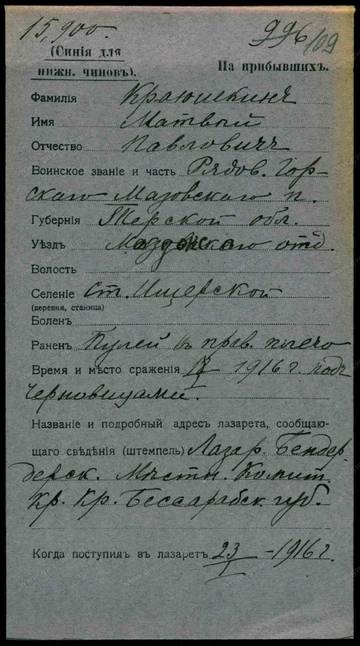 15,900.
996/109
(Синія для
нижн. чиновъ).
На прибывшихъ.
Фамилія Краюшкинъ
Имя Матвѣй
Отчество Павловичъ
Воинское званіе и часть Рядов. Гор-
скаго Мозовскаго п.
Губернія Терской обл.
Уѣздъ отд.
Волость
Селеніе Ст. Ищерской
(деревня, станица)
Боленъ
Раненъ Пулей въ прав. плечо
Время и мѣсто сраженія 1916 г. подъ
Черновицами.
Названіе и подробный адресъ лазарета, сообщаю-
щаго свѣдѣнія (штемпель) Лазар. Бендер
дерск. Мѣстн. Комит.
Кр. Кр. Бессарабск. губ.
Когда поступилъ въ лазаретъ 23/I - 1916 г.